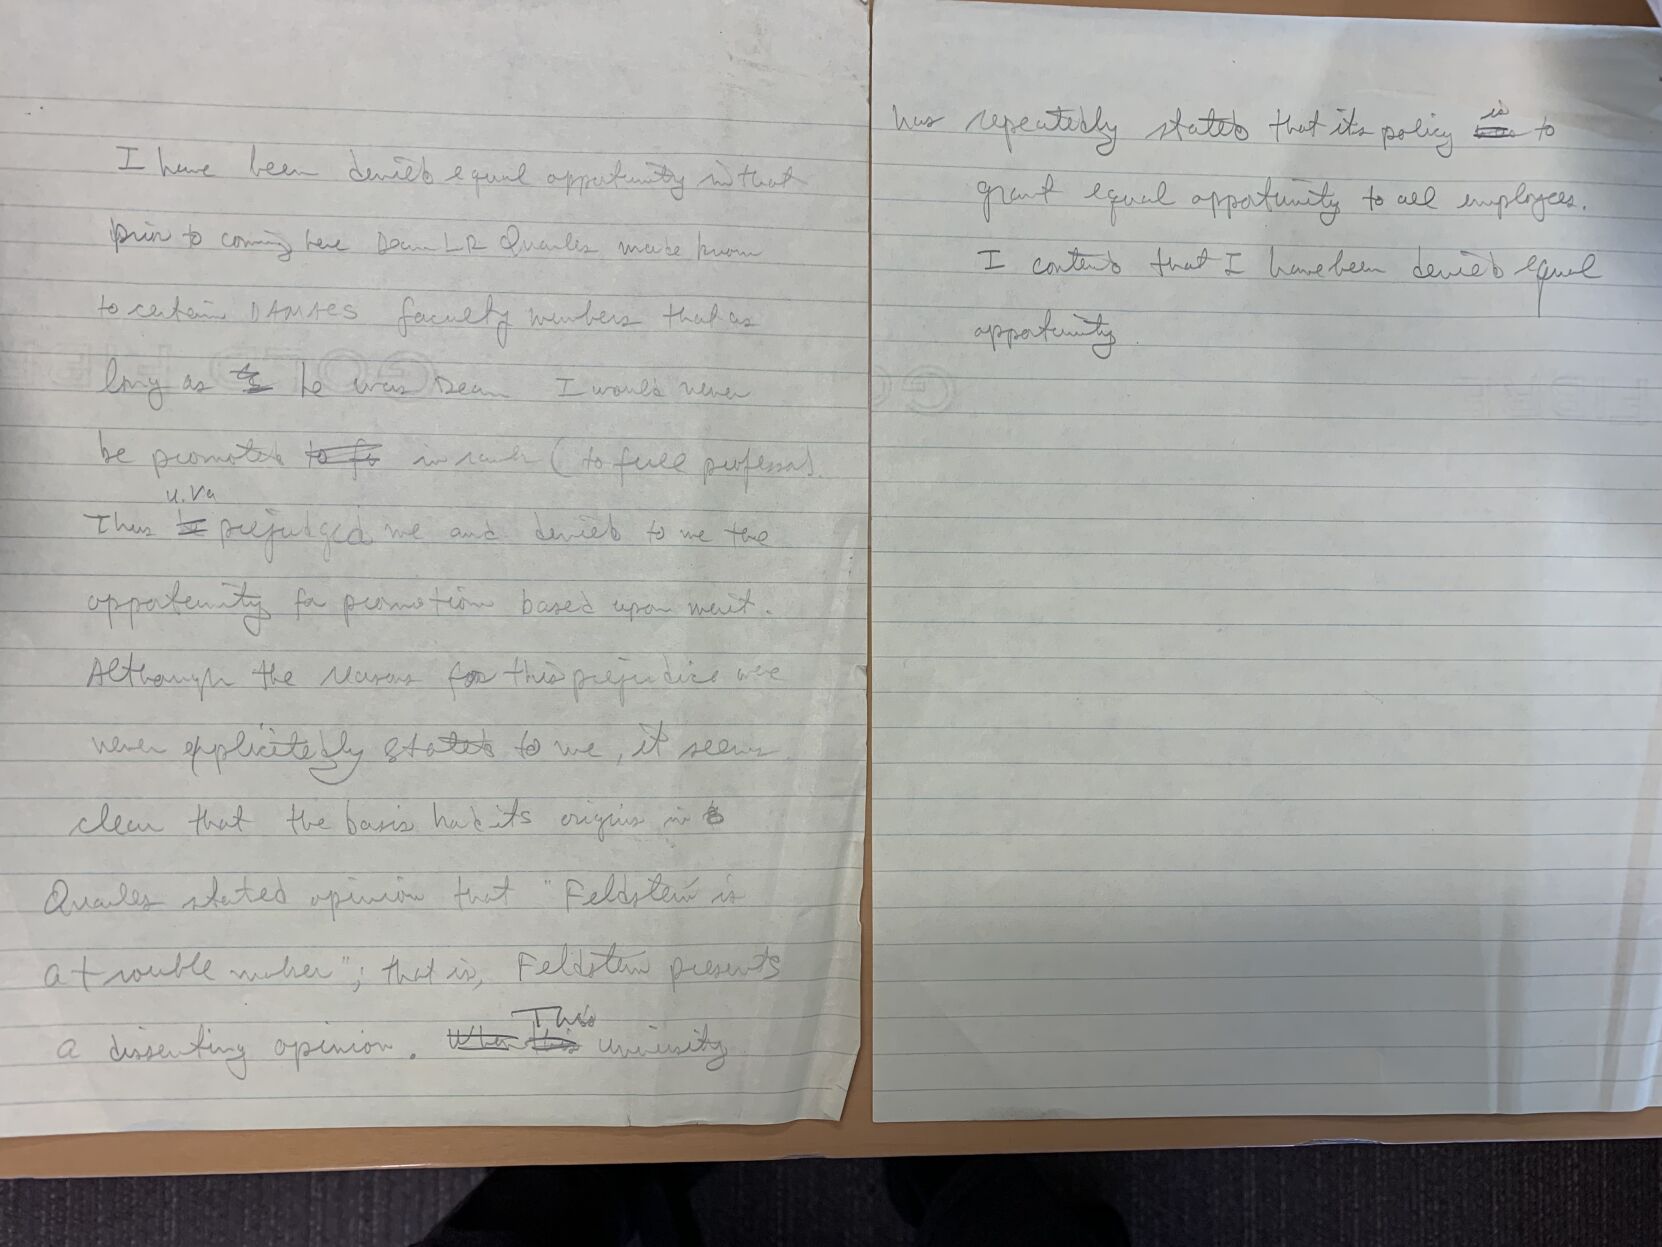 I have been denied equal opportunity in that
prior to coming here Dean LR Quarles made known
to certain DAMACS faculty members that as
long as he was Dean I would never
be promoted to fu in rank (to full professor).
U.Va
Thus he prejudged me and denied to me the
opportunity for promotion based upon merit.
Although the reasons for this prejudice were
never explicitedly stated to me, it seems
clear that the basis had its origins in
Quarles stated opinion that "Feldstein is
a trouble maker"; that is, Feldstein presents
This
a dissenting opinion. When this University
is
has repeatedly stated that its policy was to
grant equal opportunity to all employees.
I contend that I have been denied equal
opportunity.